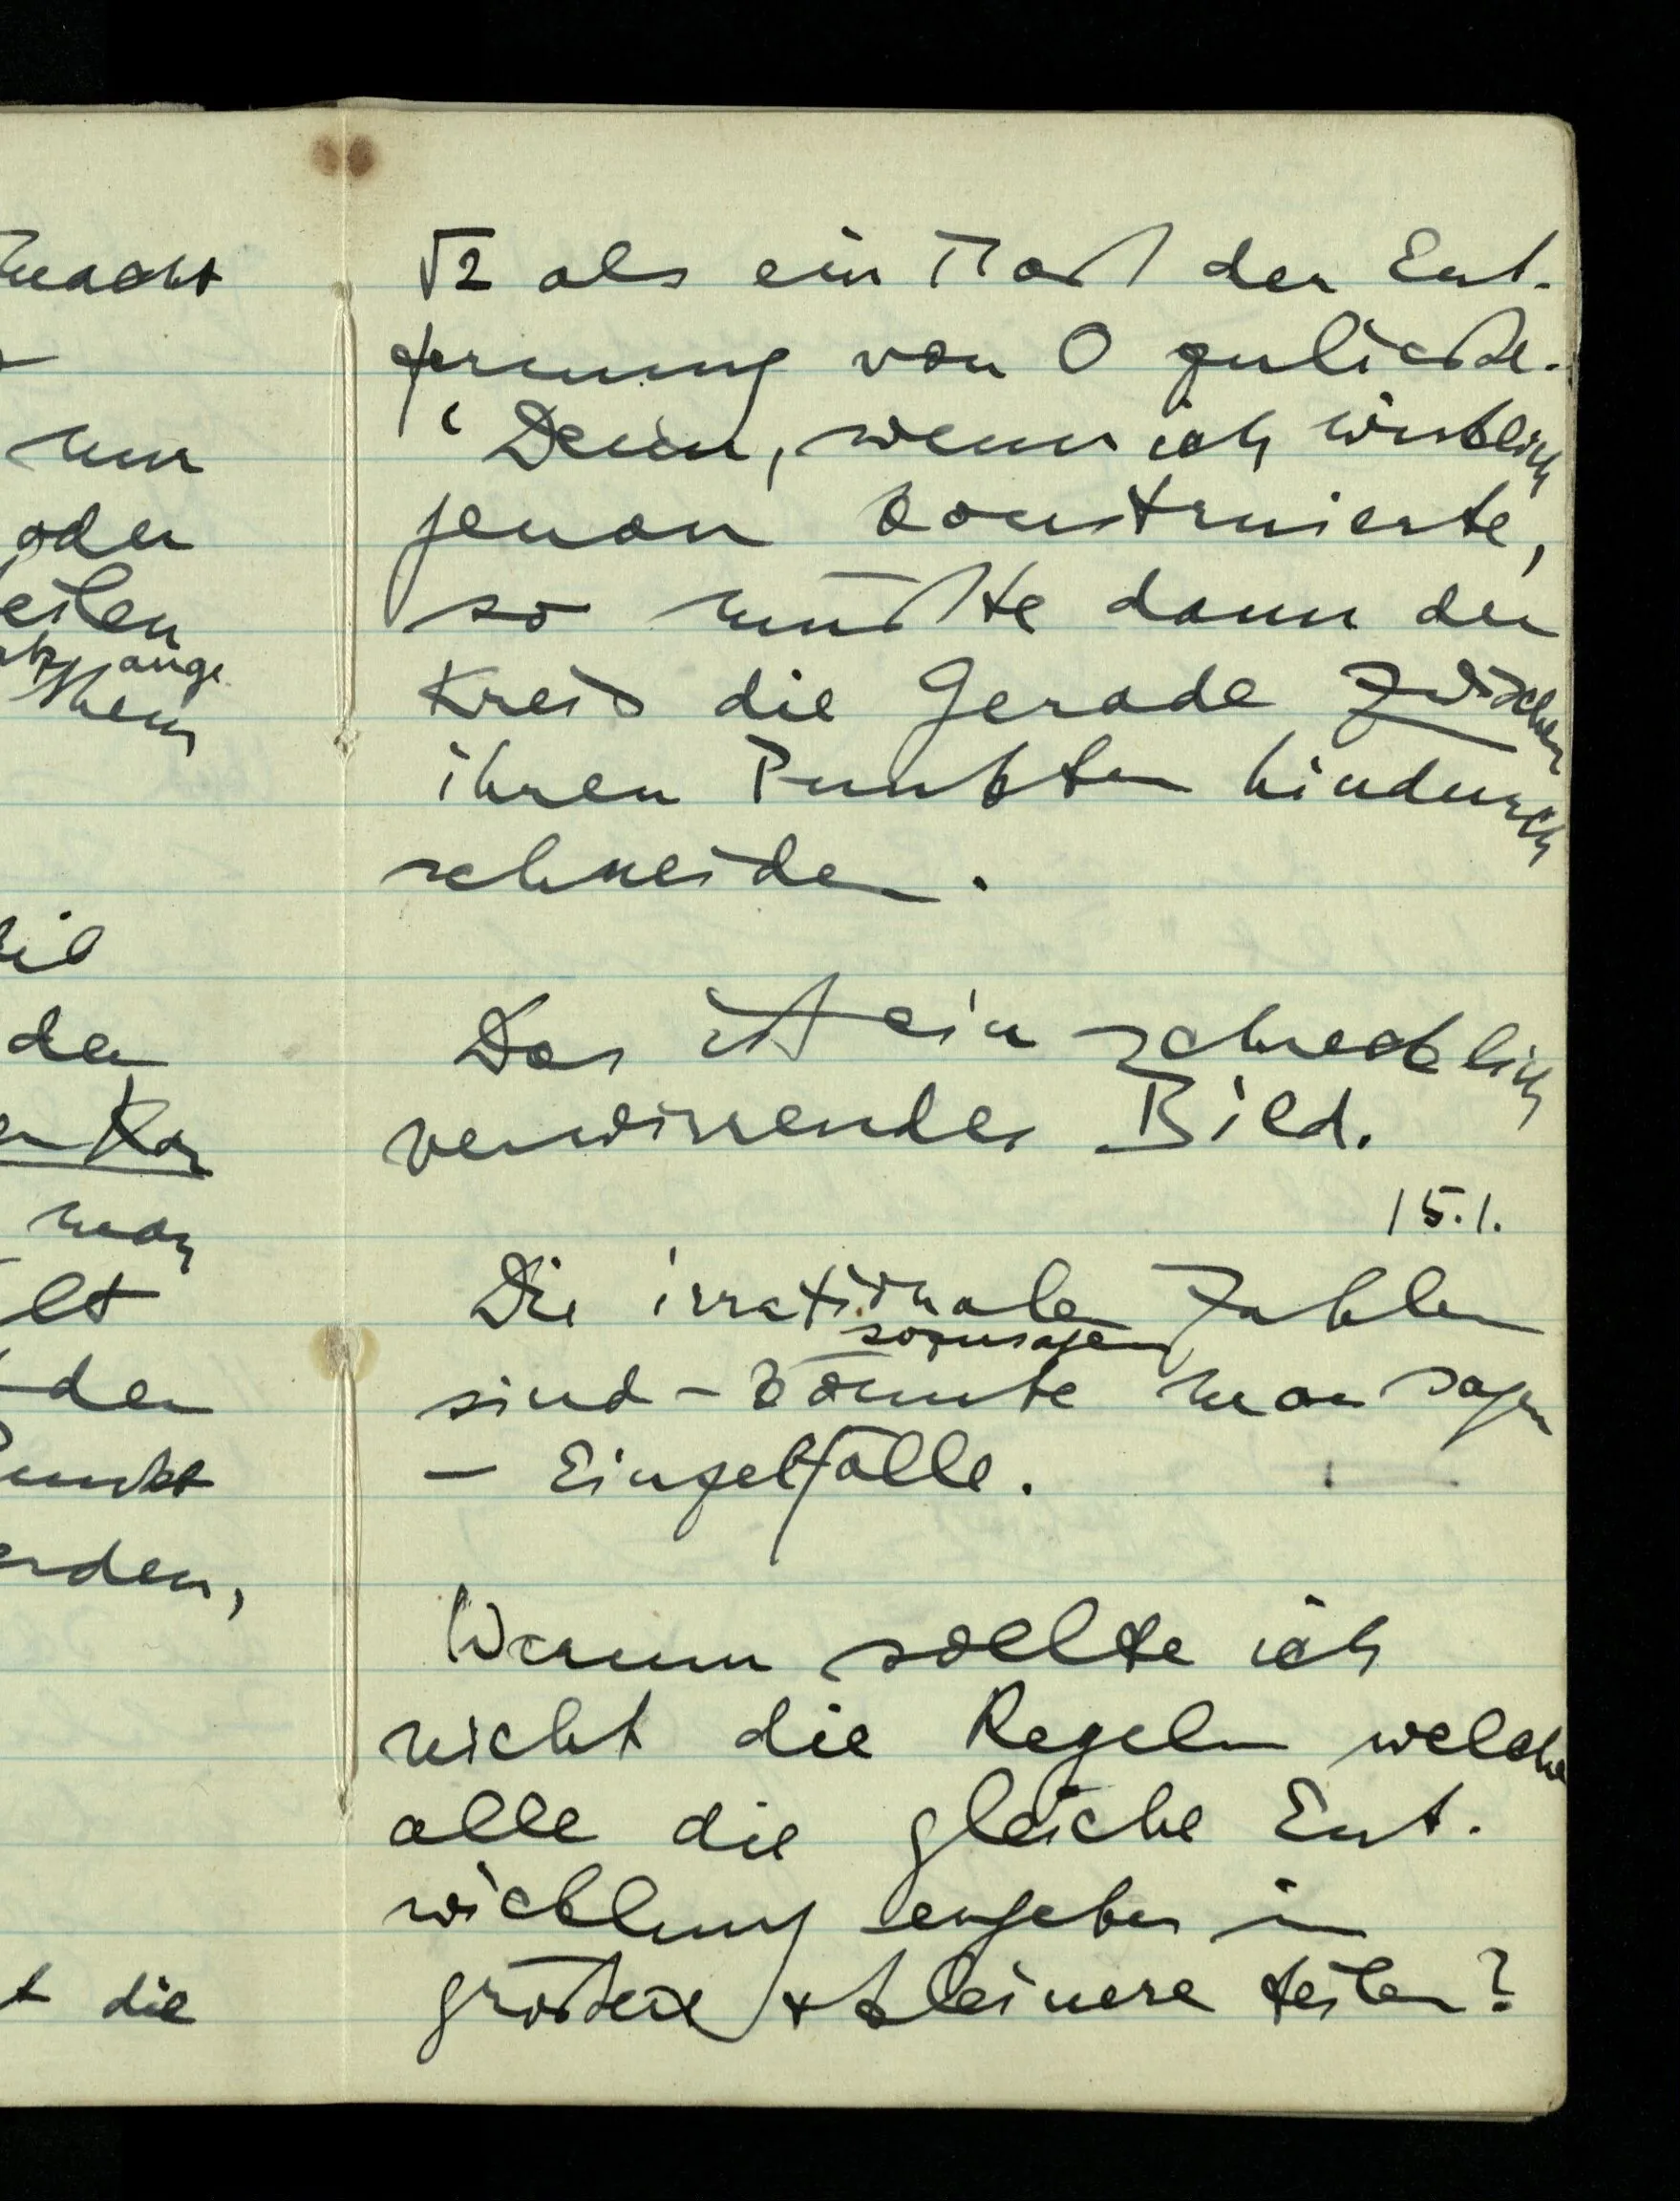 macht
nur
oder
eilen
ange
den
man
den
Punkt
erden,
t die
√2 als ein Maß der Ent-
fernung von 0 zuließe.
Denn, wenn ich wirklich
genau konstruierte,
so müßte dann der
Kreis die Gerade zwischen
ihren Punkten hindurch
schneiden.
Das ist ein schrecklich
verwirrendes Bild.
15.1.
Die irrationalen Zahlen
sozusagen
sind – könnte man sagen
– Einzelfälle.
Warum sollte ich
nicht die Regeln welche
alle die gleiche Ent-
wicklung ergeben in
größere + kleinere teilen?